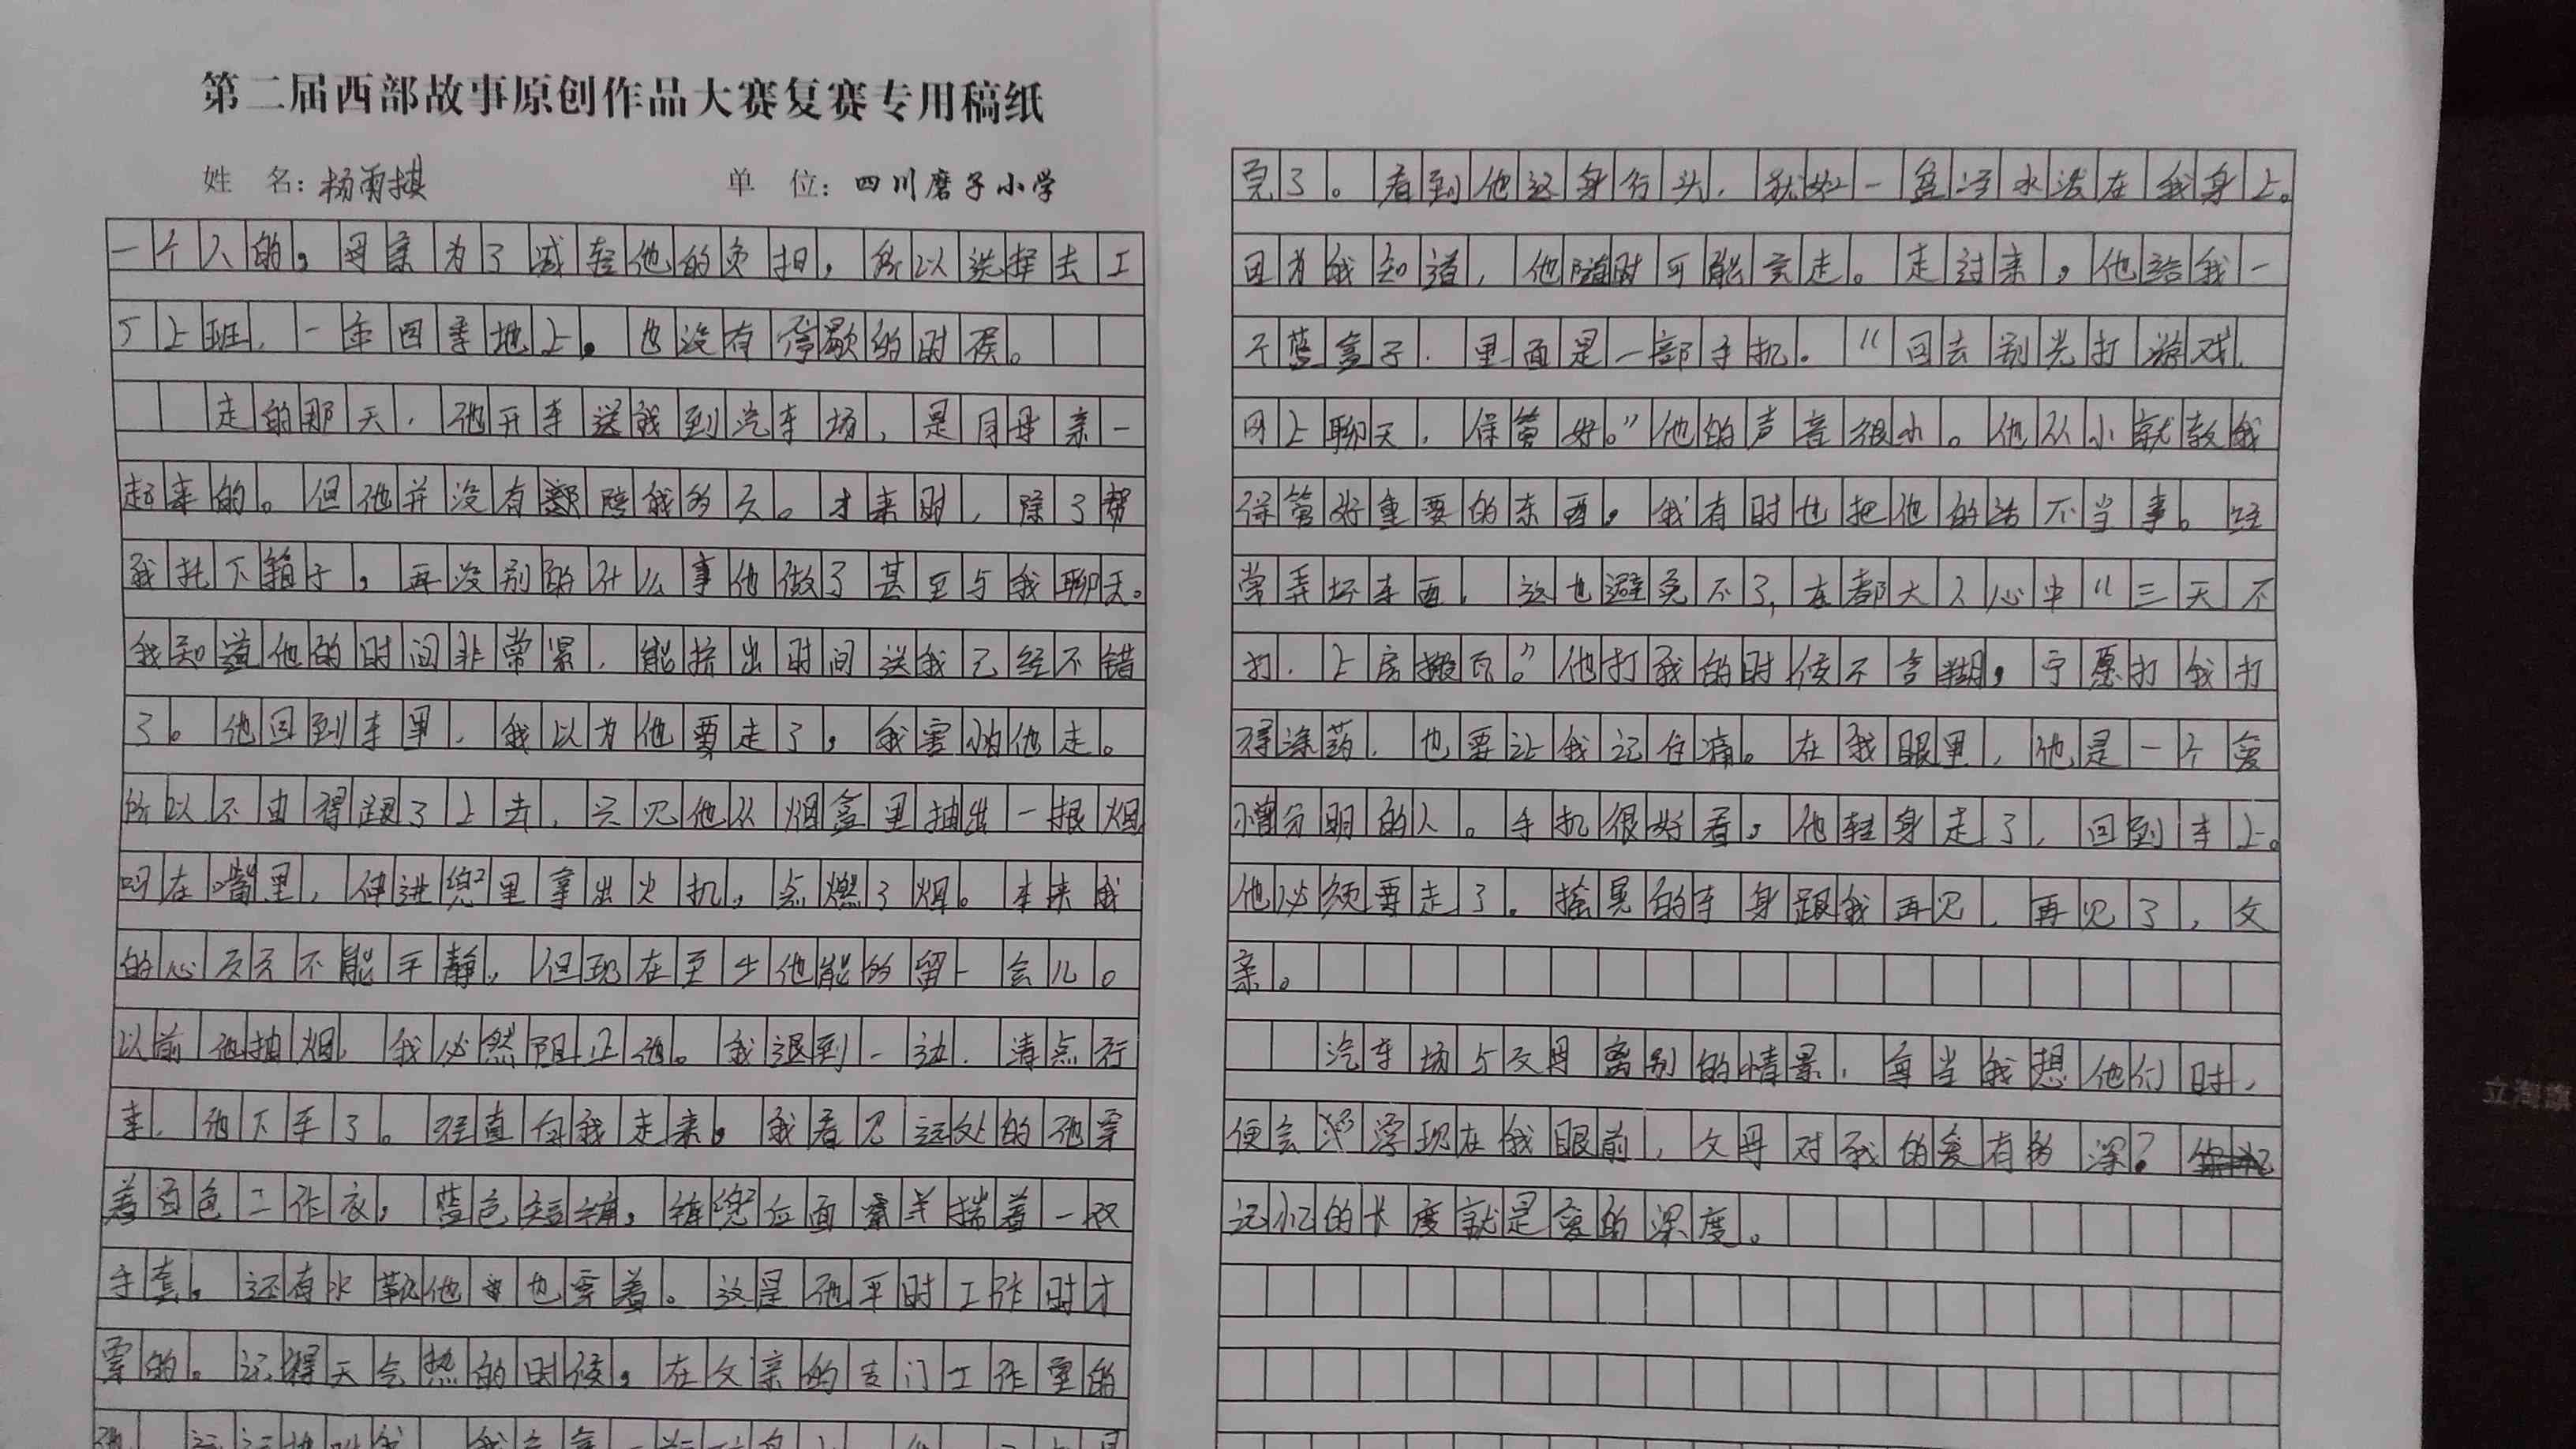 第二届西部故事原创作品大赛复赛专用稿纸
姓 名：杨雨棋
单 位：四川磨子小学
一个人的，母亲为了减轻他的负担，所以选择去工
厂上班，一年四季地上，也没有停歇的时候。
走的那天，他开车送我到汽车场，是同母亲一
起来的。但他并没有陪我多久。才来时，除了帮
我托下箱子，再没别的什么事他做了甚至与我聊天。
我知道他的时间非常紧，能挤出时间送我已经不错
了。他回到车里，我以为他要走了，我害怕他走。
所以不由得跟了上去，只见他从烟盒里抽出一根烟
叼在嘴里，伸进兜里拿出火机，点燃了烟。本来我
的心久久不能平静，但现在至少他能多留一会儿。
以前他抽烟，我必然阻止他。我退到一边，清点行
李，他下车了。径直向我走来，我看见远处的他穿
着百色工作衣，蓝色短裤，裤兜后面揣着一双
手套。还有水靴他也穿着。这是他平时工作时才
穿的。记得天气热的时候，在父亲的专门工作室的
亮了。看到他这身行头，犹如一盆冷水泼在我身上。
因为我知道，他随时可能要走。走过来，他给我一
个蓝盒子，里面是一部手机。“回去别光打游戏，
网上聊天，保管好。”他的声音很小。他从小就教我
保管好重要的东西，我有时也把他的话不当事。经
常弄坏东西，这也避免不了，在都大人心中“三天不
打，上房揭瓦。”他打我的时候不含糊，宁愿打我打
得涂药，也要让我记住痛。在我眼里，他是一个爱
憎分明的人。手机很好看，他转身走了，回到车上。
他必须要走了。摇晃的车身跟我再见，再见了，父
亲。
汽车场与父母离别的情景，每当我想他们时，
便会浮现在我眼前，父母对我的爱有多深？
记忆的长度就是爱的深度。